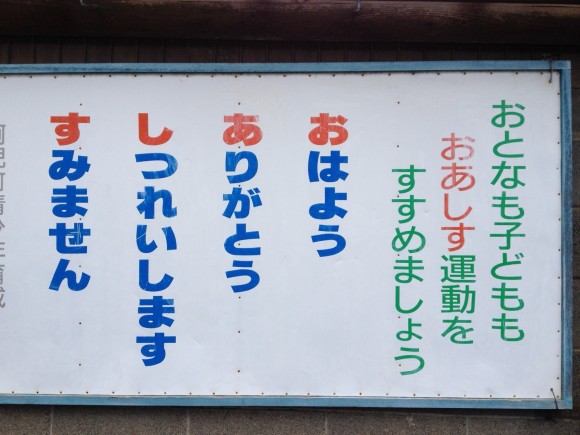 おとなも子どもも
おあしす運動を
すすめましょう
おはよう
ありがとう
しつれいします
すみません